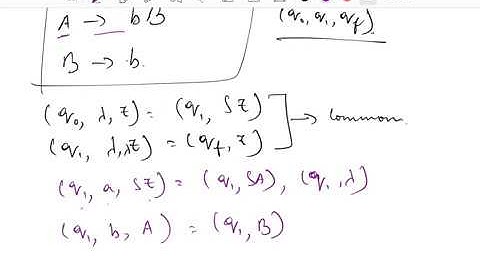 A → bB
B → b.
(q₀, q₁, q_f)
(q₀, λ, z) = (q₁, Sz)
(q₁, λ, λz) = (q_f, z)
→ common
(q₁, a, Sz) = (q₁, SA), (q₁, λ)
(q₁, b, A) = (q₁, B)